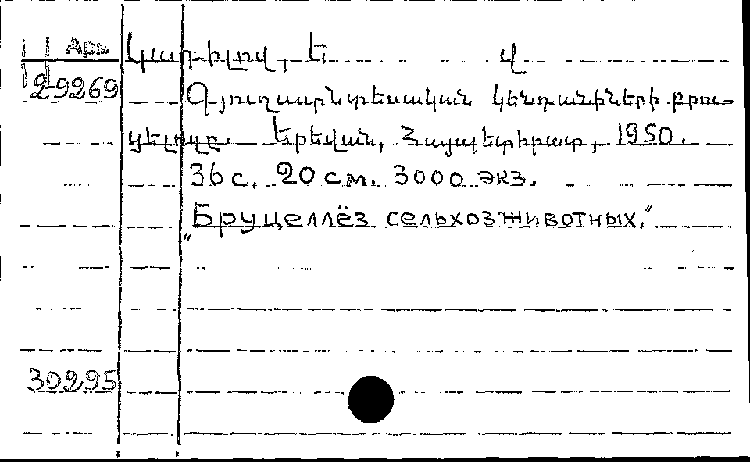 Арм Կադիլով, Ե. Վ.
2-9269 Գյուղատնտեսական կենդանիների բրու-
ցելոզը. Երեվան, Հայպետհրատ, 1950.
36 с. 20 см. 3000 экз.
"Бруцеллёз сельхозживотных."
30295